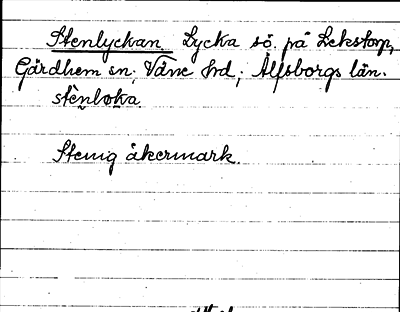 Stenlyckan. Lycka sö. på Lekstorp,
Gärdhem sn. Väne hd; Älfsborgs län.
Stenig åkermark.